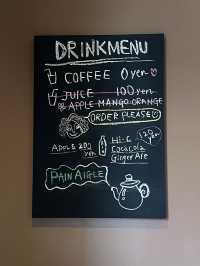 DRINKMENU
COFFEE 0yen
JUICE 100yen
APPLE MANGO ORANGE
ORDER PLEASE
Apple 200 yen
Hi-C
Coca Cola
Ginger Ale
120 yen
PAIN AIGLE